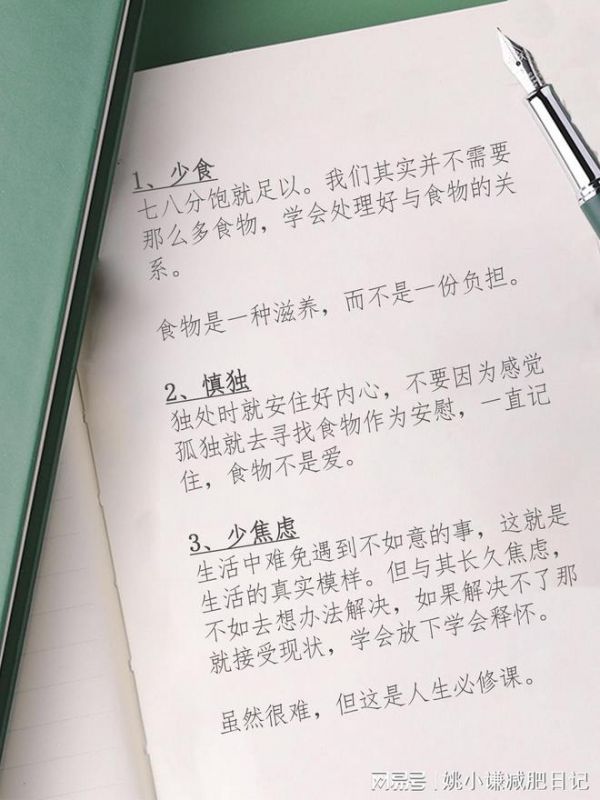 1、少食
七八分饱就足以。我们其实并不需要
那么多食物，学会处理好与食物的关
系。
食物是一种滋养，而不是一份负担。
2、慎独
独处时就安住好内心，不要因为感觉
孤独就去寻找食物作为安慰，一直记
住，食物不是爱。
3、少焦虑
生活中难免遇到不如意的事，这就是
生活的真实模样。但与其长久焦虑，
不如去想办法解决，如果解决不了那
就接受现状，学会放下学会释怀。
虽然很难，但这是人生必修课。
网易号 @姚小谦减肥日记